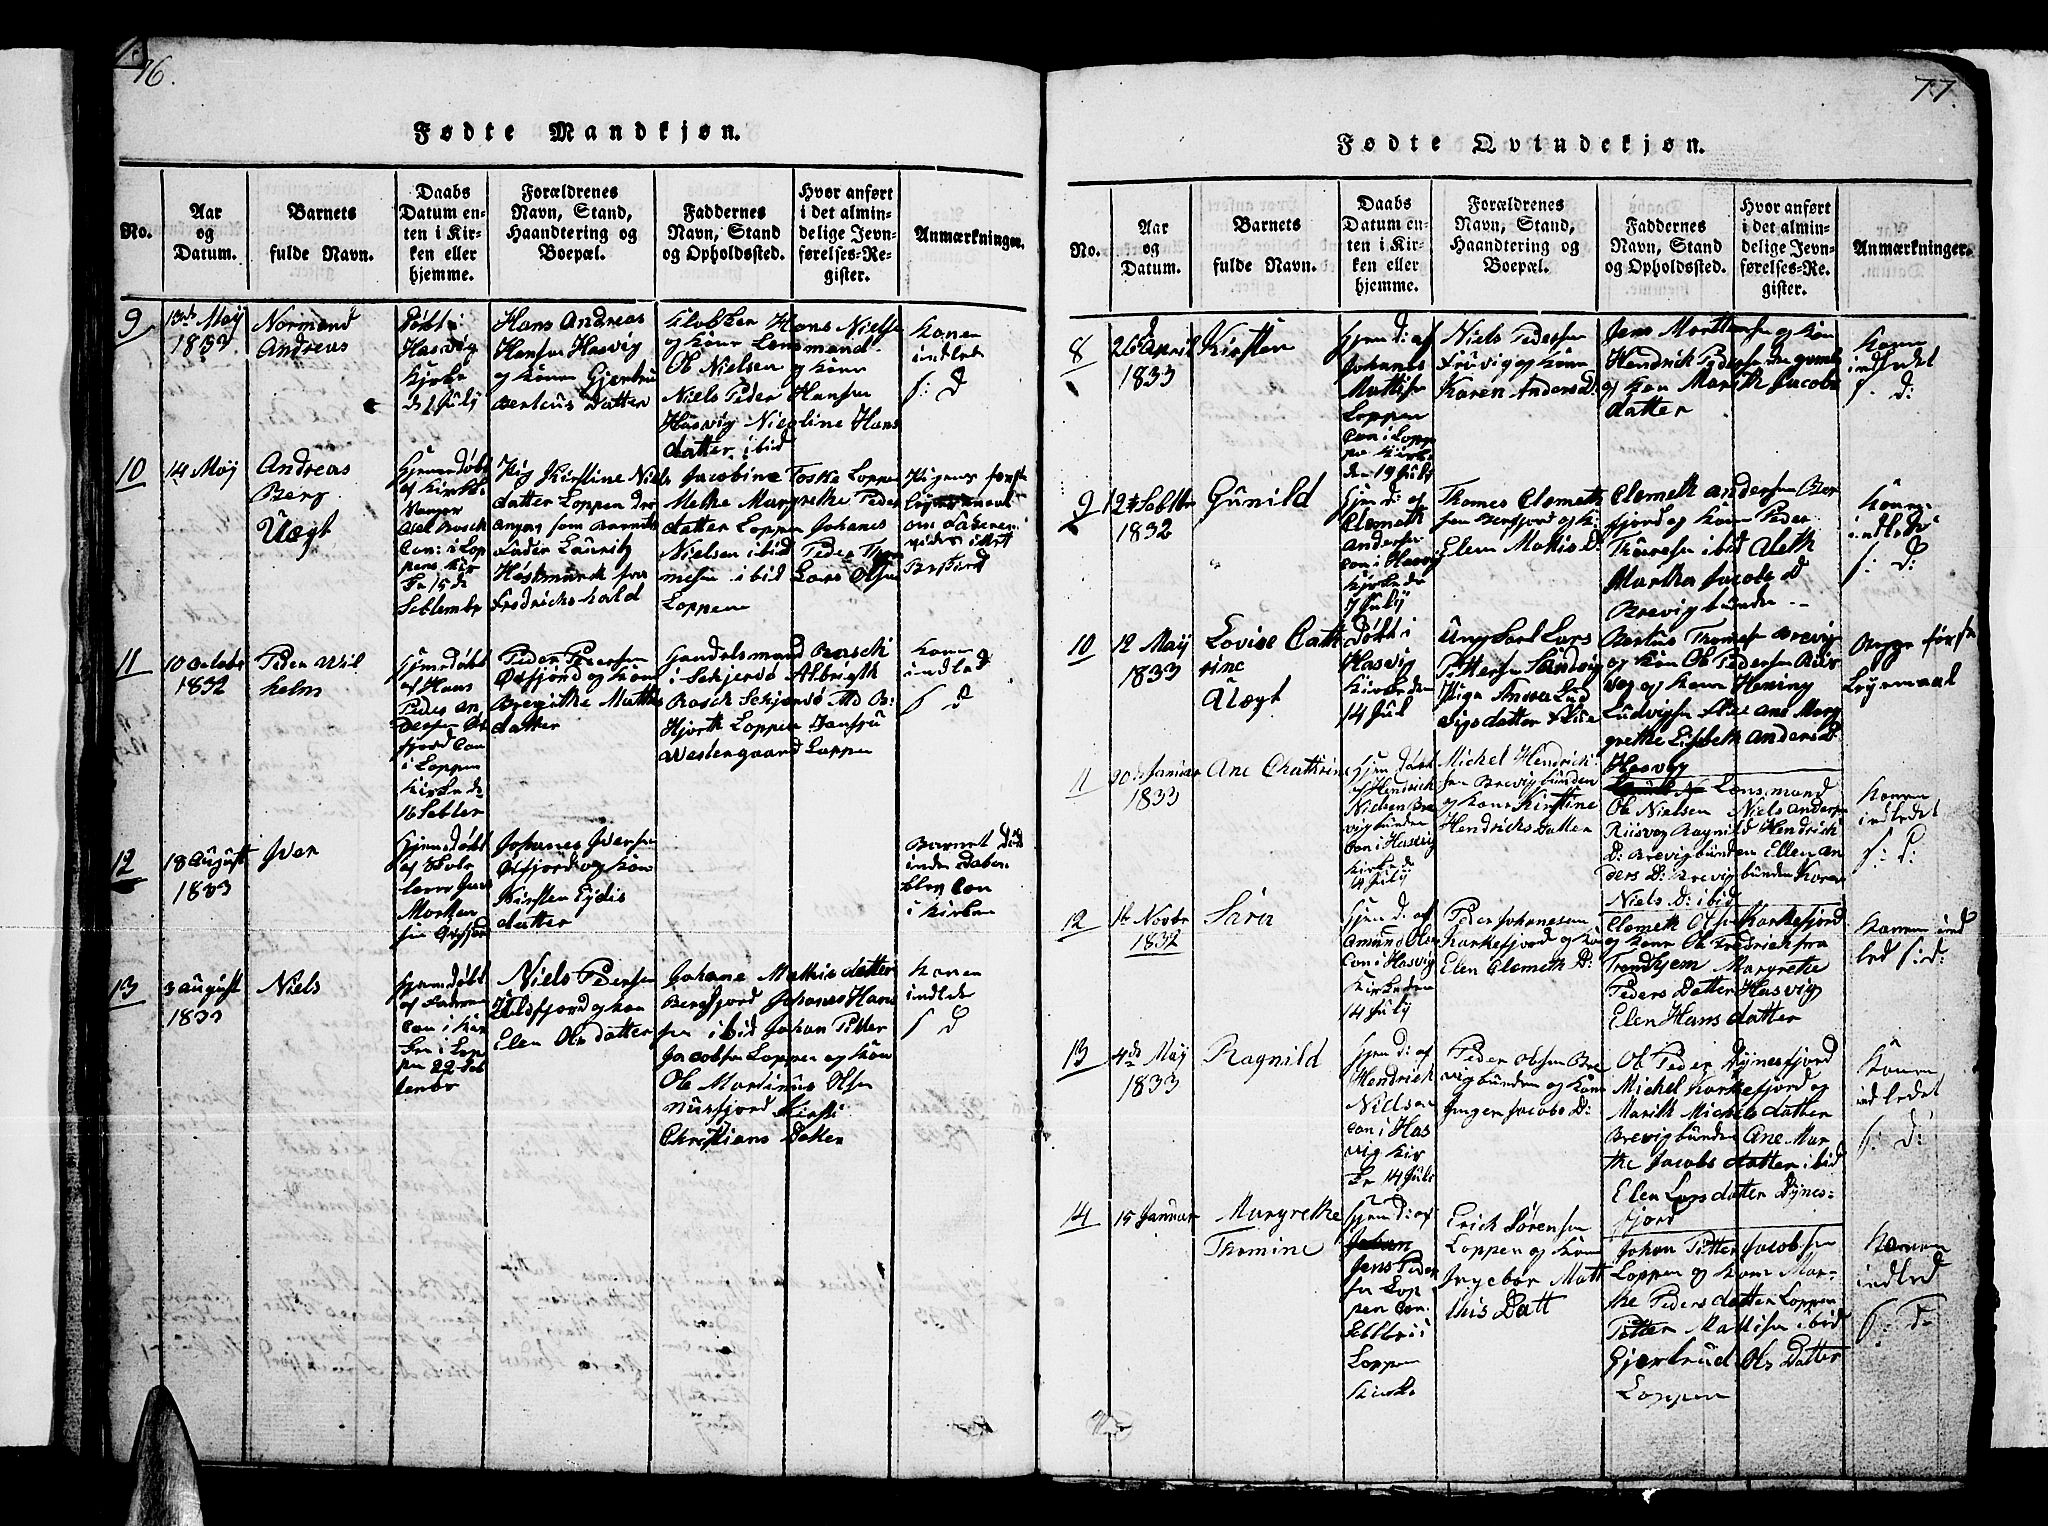 76.
Fødte Mandkjøn.
No.
Aar
og
Datum.
Barnets
fulde Navn.
Daabs
Datum en-
ten i Kir-
ken eller
hjemme.
Forældrenes
Navn, Stand,
Haandtering og
Boepæl.
Faddernes
Navn, Stand
og Opholdssted.
Hvor anført
i det almin-
delige Jevn-
førelses-Re-
gister.
Anmærkninger.
9
13de Maÿ
1833
Normand
Andreas
Døbt i
Hasvig
Kirke
d 7 Julÿ
Hans Andreas
Hansen Hasvig
og Kone Gjertru
Berteus Datter
Klokker Hans Nielse
og Kone Lensmand
Ole Nielsen og Kone
Niels Peder Hansen
Hasvig Nicoline Hans
datter ibid
Konen
indlede
f: D
10
14 Maÿ
Andreas
Berg
Uægt
Hjemedøbt
af Kirke
Sanger
Axel Busch
Con: i Lop
pens Kir
ke 15 de
Sebtembr
Pig Kirstine Niels
datter Loppen
angav som Barnets
Fader Lauritz
Hostmarck fra
Fredrickshald
Jacobine Foske Loppen
Mette Margrethe Peder
datter Loppen Johanes
Nielsen ibid Peder Thom
mesen ibid Lars Olsen
Loppen
Pigens første
Leÿermaal
11
10 Octobr
1832
Peder Wil
helm
Hjemedøbt
af Hans
Peder An
dersen Øx
fjord Con
i Loppen
Kirke d:
16 Sebter
Peder Pedersen
Øxfjord og Kone
Bregithe Mathis
datter
Handelsmand Buch
i Sckjervø Albrigth
Buch Sckjervø Md B:
Hjorth Loppen Jomfru
Westergaard Loppen
Kone
indled
f D
12
18 August
1833
Iver
Hjemedøbt
af Skole
lærer Jens
Morten
sen Øxfjord
Johanes Iversen
Øxfjord og Kone
Kirsten Eÿdis
datter
Barnet død
inden Daaben
blev Con
i Kirken
13
3 August
1833
Niels
Hjemedøbt
af Faderen
Con i Kir
ken i Lop
pen 22 Seb
tember
Niels Pedersen
Uldsfjord og kon
Elen Ols datter
Johane Mathis datter
Bergsfjord Johanes Hans
sen ibid Johan Petter
Jacobsen Loppen og Kone
Ole Martinus Olsen
Nusfjord Kirsti
Christians Datter
Konen
indlede
f D
77.
Fødte Qvindekjøn.
No.
Aar
og
Datum.
Barnets
fulde Navn.
Daabs
Datum en-
ten i Kir-
ken eller
hjemme.
Forældrenes
Navn, Stand,
Haandtering og
Boepæl.
Faddernes
Navn, Stand
og Opholdssted.
Hvor anført
i det almin-
delige Jevn-
førelses-Re-
gister.
Anmærkninger.
8
26d April
1833
Kirsten
Hjem D: af
Johanes
Mattisen
Loppen
Con i Lopp
pe Kirk
den 19 Juli
Niels Pedersen
Fruvig og Kone
Karen Anders D:
Jens Morttensen og Kon
Hendrick Pedersen den gamle
og Kon Marith Jacobs
datter
Konen
indledet
f: D:
9
12t Sebtbr
1832
Gunild
Hjem D: af
Clemeth
Andersen
Con i Hasvig
Kirke d
7 Julÿ
Thomes Clemeth
sen Bersfjord og K:
Elen Mattis D:
Clemeth Andersen Ber
fjord og Kone Peder
Thuresen ibid Aleth
Martha Jacobs d
Brevigbunden
Konen
indledet
f: D:
10
12 Maÿ
1833
Lovise Cath
rine
Uægt
Døbt i
Hasvig
Kirke den
14 Jul
Ung Karl Lars
Pettersen Sandvig
Piga Anna Lud
vigs datter
Bertus Thomesen Brevig
og Kone Ole Pedersen Riis
vog og Kone Hening
Ludvigsen Ane Mar
grethe Lisbeth Anders D:
Hasvig
Begge første
Leÿermaal
11
30 de Januar
1833
Ane Chathrine
Hjem Døbt
af Hendrick
Nielsen Bre
vigbunden
Con i Hasvig
Kirke d
14 Julÿ
Michel Hendrick
sen Brevigbunden
og Kone Kirstine
Hendricks Datter
Lensmand
Ole Nielsen Niels Anders
Riisvog Ragnild Hendrick
D: Brevigbunden Ellen An
ders D: Brevigbunden Karen
Niels D: ibid
Konen
indledet
f: D:
12
1te Novbr
1832
Sara
Hjem D: af
Amund Olsen
Con i Hasvig
Kirke den
14 Julÿ
Peder Johanesen
Karkefjord og Kon
Elen Clemeth D:
Clemeth Olsen Karkefjord
og Kone Ole Fredrick fra
Trondhjem Margrethe
Peders Datter Hasvig
Elen Hans datter
Konen ind
led f: D:
13
4de Maÿ
1833
Ragnild
Hjem D: af
Hendrick
Nielsen
Con i Has
vig Kir
ke 14 Juli
Peder Olsen Bre
vigbunden og Kone
Inger Jacobs D:
Ole Peder Dÿnesfjord
Michel Karkefjord og
Marith Michels datter
Brevigbunden Ane Mar
the Jacobs datter ibid
Elen Lars datter Dÿnes-
fjord
Konen
indledet
f: D:
14
15 Januar
Margrethe
Thomine
Hjem D: af
Jens Peder
sen Lop
pen Con:
Sebtbr i
Loppen
Kirke
Erick Sørensen
Loppen og Kone
Ingebor Matt
this Datt
Johan Petter Jacobsen
Loppen og Kone Mar-
the Peders datter Loppen
Petter Mattisen ibid
Gjertrud Ols Datter
Loppen
Konen
indled
f: D: